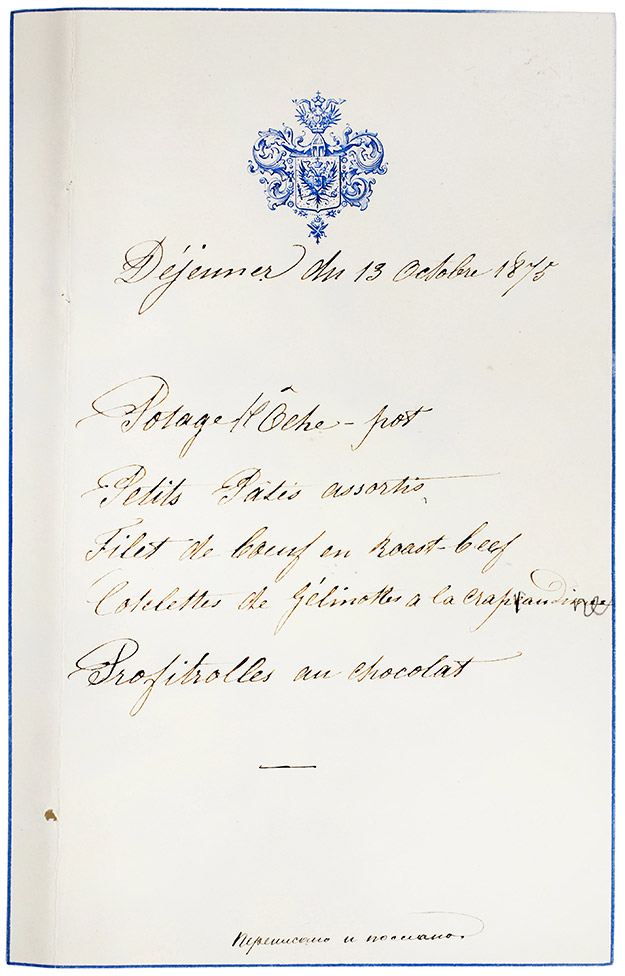 Déjeuner du 13 Octobre 1875
Potage H'Oche-pot
Petits Pâtés assortis
Filet de boeuf en Roast-beef
Cotelettes de Gélinottes a la crapaudine
Profitrolles au chocolat
Переписано и послано.